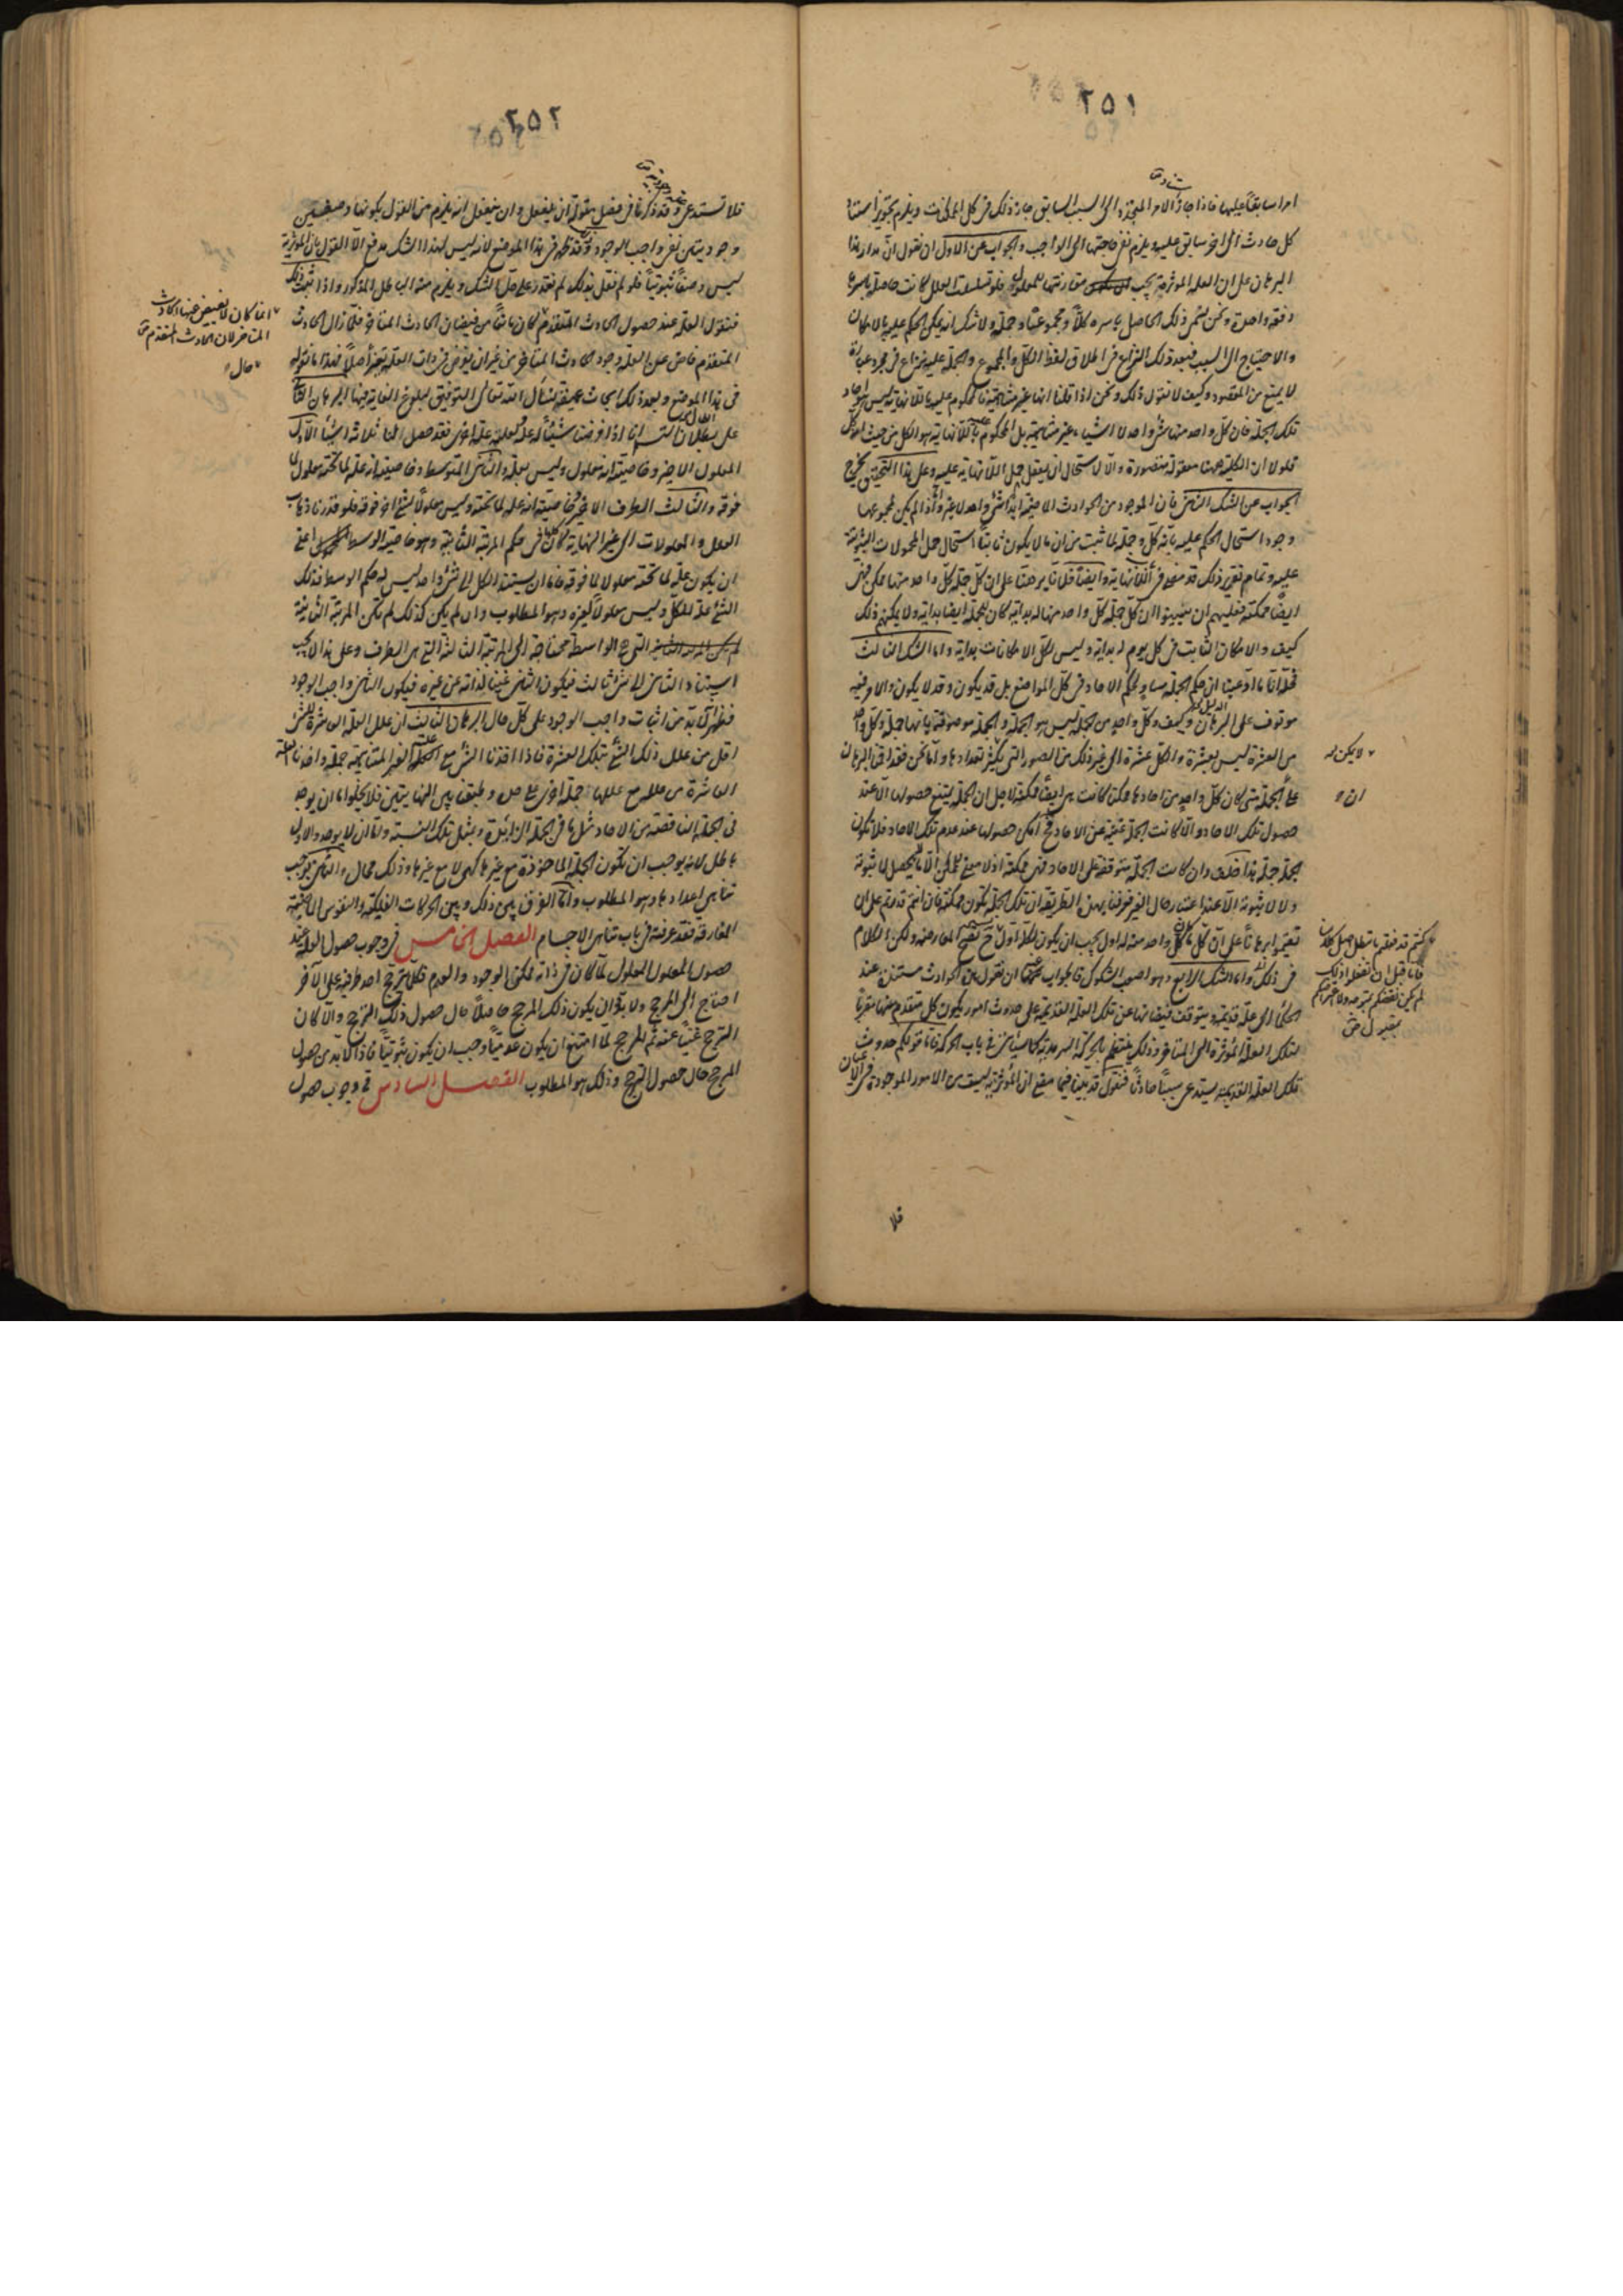 ٢٥١
امرا سابقا عليها فاذا جاز الامر المتجدد الى السبب السابق جاز ذلك فى كل الممكنات ويلزم تجويز استناد
كل حادث الى اخر سابق عليه ويلزم نفى حاجتها الى الواجب والجواب عن الاول ان نقول ان مدار هذا
البرهان على ان العلة المؤثرة يجب مقارنتها للمعلول فلو تسلسلت العلل لكانت حاصلة باسرها
دفعة واحدة ونحن نسمى ذلك الحاصل باسره كلا ومجموعا وجملة ولا شك انه يمكن الحكم عليه بالامكان
والاحتياج الى السبب فبعد ذلك النزاع فى اطلاق لفظ الكل والمجموع والجملة عليه نزاع فى مجرد عبارة
لا يمنع من المقصود وكيف لا نقول ذلك ونحن اذا قلنا انها غير متناهية فالمحكوم عليه باللانهاية ليس هو احاد
تلك الجملة فان كل واحد منها شئ واحد لا اشياء غير متناهية بل المحكوم عليه باللانهاية هو الكل من حيث هو كل
فلولا ان الكلية ههنا معقولة متصورة والا لاستحال ان يعقل حمل اللانهاية عليه وعلى هذا التحقيق يخرج
الجواب عن الشك الثانى فان الموجود من الحوادث الماضية ابدا شئ واحد لا غير واذا لم يكن لمجموعها
وجود استحال الحكم عليه بانه كل وجملة لما ثبت من ان ما لا يكون ثابتا استحال حمل المحمولات الثبوتية
عليه وتمام تقرير ذلك قد مضى فى اللانهاية وايضا فلانا برهنا على ان كل جملة كل واحد منها ممكن فهى
ايضا ممكنة فعليهم ان يبينوا ان كل جملة كل واحد منها له بداية كان للجملة ايضا بداية ولا يمكنهم ذلك
كيف والامكان الثابت فى كل يوم له بداية وليس لكل الامكانات بداية واما الشك الثالث
فحله انا ما ادعينا ان حكم الجملة مساو لحكم الاحاد فى كل المواضع بل قد يكون وقد لا يكون والامر فيه
موقوف على البرهان وكيف وكل واحد من الجملة ليس هو الجملة والجملة موصوفة بانها جملة وكل واحد
من العشرة ليس بعشرة والكل عشرة الى غير ذلك من الصور التى يكثر تعدادها واما نحن فقد اقمنا البرهان
على الجملة متى كان كل واحد من احادها ممكنا كانت هى ايضا ممكنة لاجل ان الجملة يمتنع حصولها الا عند
حصول تلك الاحاد والا لكانت الجملة غنية عن الاحاد فح امكن حصولها عند عدم تلك الاحاد فلا تكون
الجملة جملة هذا خلف وان كانت الجملة متوقفة على الاحاد فهى ممكنة اذ لا معنى للممكن الا ما يحصل له ثبوته
ولا لا ثبوته الا عند اعتبار حال الغير فعرفنا بهذه الطريقة ان تلك الجملة تكون ممكنة فان انتم قدرتم على ان
تقيموا برهانا على ان كل ما كان كل واحد منه له اول يجب ان يكون لكله اول ح تصح المعارضة ولكن الكلام
فى ذلك واما الشك الرابع وهو اصعب الشكوك فالجواب عنه ان نقول هذه الحوادث مستندة عند
الحكماء الى علة قديمة ويتوقف فيضانها عن تلك العلة القديمة على حدوث امور يكون كل متقدم منها مقربا
لتلك العلة المؤثرة الى المتأخر وذلك ينتظم بالحركة السرمدية كما سيأتى فى باب الحركة فاما قولكم حدوث
تلك العلة القديمة يستدعى سببا حادثا فنقول قد بينا فيما مضى ان المؤثرية ليست من الامور الموجودة فى الاعيان
فلا
لا يكن له
ان
٢٥٢
فلا تستدعى وقد ذكرنا فى فصل مقولة ان يفعل وان ينفعل انه يلزم من القول بكونهما وصفين
وجوديين نفى واجب الوجود وقد ظهر فى هذا الموضع لانه ليس لهذا الشك مدفع الا القول بان المؤثرية
ليس وصفا ثبوتيا فلو لم نقل بذلك لم نقدر على حل الشك ويلزم منه الباطل المذكور واذا ثبت ذلك
فنقول العلة عند حصول الحادث المتقدم كان مانعا من فيضان الحادث المتأخر فلما زال الحادث
المتقدم فاض عن العلة وجود الحادث المتأخر من غير ان يعرض فى ذات العلة تغير اصلا فهذا ما نقوله
فى هذا الموضع وبعد ذلك ابحاث عميقة نسأل الله تعالى التوفيق لبلوغ الغاية فيها البرهان الثانى
على بطلان التسلسل انا اذا فرضنا شيئا له علة ولعلته علة اخرى فقد حصل لنا ثلاثة اشياء الاول
المعلول الاخير وخاصيته انه معلول وليس بعلة والثانى المتوسط وخاصيته انه علة لما تحته معلول لما
فوقه والثالث الطرف الاخير وخاصيته انه علة لما تحته وليس معلولا لشئ اخر فوقه فلو قدرنا ذهاب
العلل والمعلولات الى غير النهاية لكان كلها فى حكم المرتبة الثانية وهو خاصية الوسط اعنى
ان يكون علة لما تحته معلولا لما فوقه فاما ان يستند الكل الى شئ واحد ليس له حكم الوسط فذلك
الشئ علة للكل وليس معلولا لغيره وهو المطلوب وان لم يكن كذلك لم تكن المرتبة الثانية
التى هى الواسطة محتاجة الى المرتبة الثالثة التى هى الطرف وعلى هذا لا يجب
استناد الثانى الى شئ ثالث فيكون الثانى غنيا لذاته عن غيره فيكون الثانى واجب الوجود
فظهر انه لا بد من اثبات واجب الوجود على كل حال البرهان الثالث ان علل العلة العاشرة للشئ
اقل من علل ذلك الشئ بتلك العشرة فاذا اخذنا الشئ مع علله الغير المتناهية جملة واخذنا العلة
العاشرة من علله مع عللها جملة اخرى على حدة وطبقنا بين النهايتين فلا يخلوا اما ان يوجد
فى الجملة الناقصة من الاحاد مثل ما فى الجملة الزائدة وبمثل تلك النسبة واما ان لا يوجد والاول
باطل لانه يوجب ان تكون الجملة الماخوذة مع غيرها كهى لا مع غيرها وذلك محال والثانى يوجب
تناهى اعدادها وهو المطلوب واما الفرق بين ذلك وبين الحركات الفلكية والنفوس الماضية
المفارقة فقد عرفته فى باب تناهى الاجسام الفصل الخامس فى وجوب حصول العلة عند
حصول المعلول المعلول لما كان فى ذاته ممكن الوجود والعدم فكلما ترجح احد طرفيه على الآخر
احتاج الى المرجح ولا بد وان يكون ذلك المرجح حاصلا حال حصول ذلك الترجح والا لكان
الترجح غنيا عنه ثم المرجح لما امتنع ان يكون عدميا وجب ان يكون ثبوتيا فاذا لا بد من حصول
المرجح حال حصول الترجح وذلك هو المطلوب الفصل السادس فى وجوب حصول
انما كان لا يفيض عنها الحادث
المتأخر لان الحادث المتقدم
حال